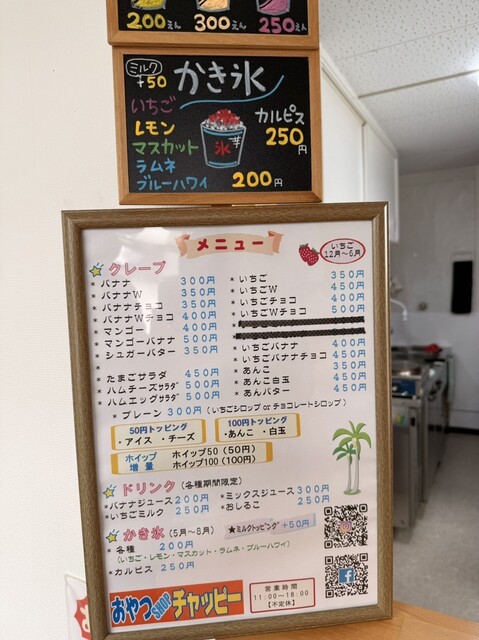 200えん 300えん 250えん
ミルク +50 かき氷
いちご
レモン
マスカット
ラムネ
ブルーハワイ 200円
カルピス 250円
氷
メニュー
いちご 12月~6月
クレープ
* バナナ 300円
* バナナW 350円
* バナナチョコ 350円
* バナナWチョコ 400円
* マンゴー 400円
* マンゴーバナナ 500円
* シュガーバター 350円
*
* たまごサラダ 450円
* ハムチーズサラダ 500円
* ハムエッグサラダ 500円
* いちご 350円
* いちごW 450円
* いちごチョコ 400円
* いちごWチョコ 500円
* いちごバナナ 400円
* いちごバナナチョコ 450円
* あんこ 350円
* あんこ白玉 450円
* あんバター 450円
* プレーン 300円 (いちごシロップ or チョコレートシロップ)
50円トッピング
・アイス ・チーズ
100円トッピング
・あんこ ・白玉
ホイップ増量 ホイップ50(50円)
ホイップ100(100円)
ドリンク (各種期間限定)
* バナナジュース 200円
* いちごミルク 250円
* ミックスジュース 300円
* おしるこ 250円
かき氷 (5月~8月) ★ミルクトッピング +50円
* 各種 200円
(いちご・レモン・マスカット・ラムネ・ブルーハワイ)
* カルピス 250円
おやつSHOPチャッピー
営業時間
11:00~18:00
【不定休】